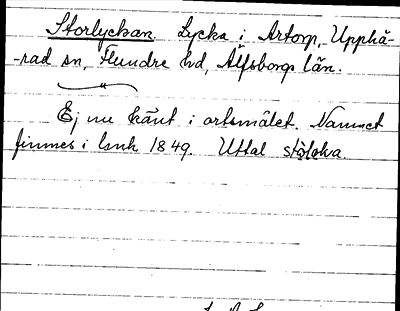 Storlyckan. Lycka i Artorp, Upphä-
-rad sn, Flundre hd, Älfsborgs län.
Ej nu känt i ortsmålet. Namnet
finnes i lmh 1849. Uttal